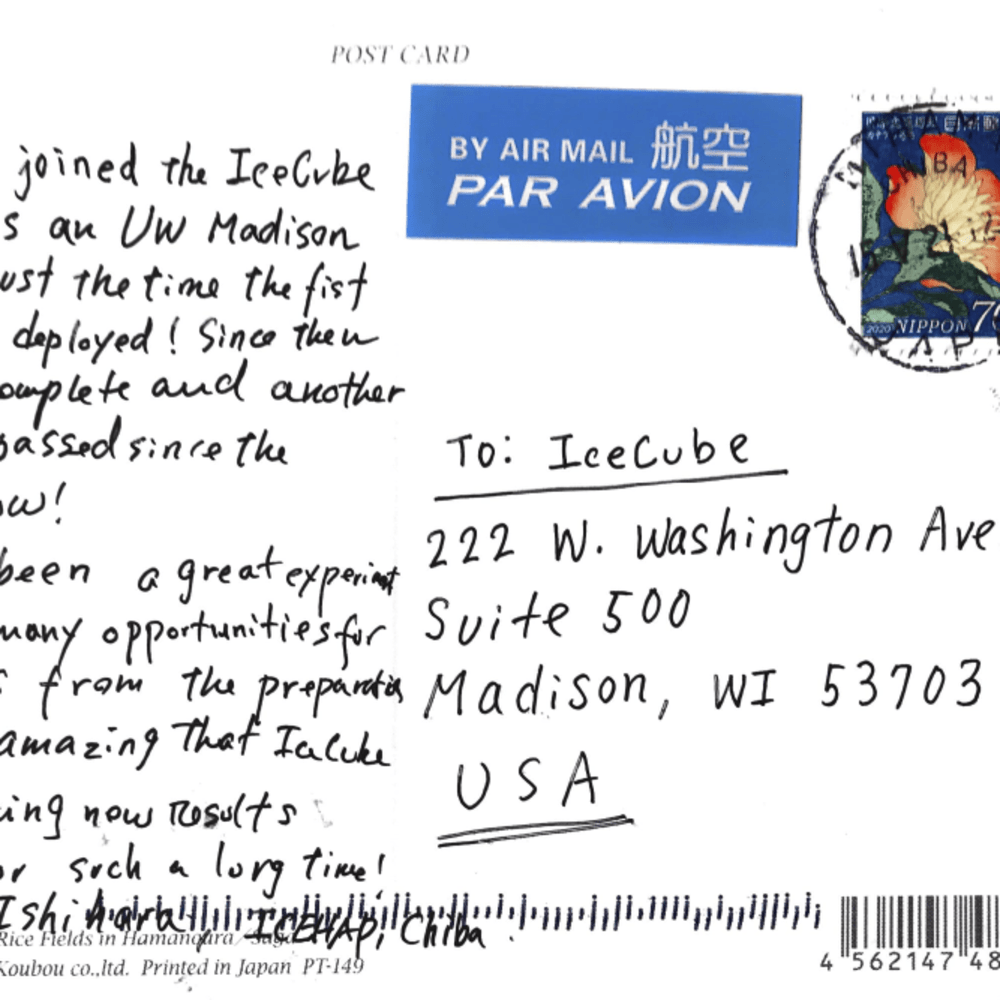 POST CARD
BY AIR MAIL 航空
PAR AVION
CHIBA
2020 NIPPON 7
joined the IceCube
s an UW Madison
ust the time the fist
deployed! Since then
omplete and another
passed since the
ow!
been a great experient
many opportunities for
from the preparation
amazing that IceCube
ing new Results
or such a long time!
Ishihara, ICEHAP, Chiba.
To: IceCube
222 W. Washington Ave
Suite 500
Madison, WI 53703
USA
Rice Fields in Hamanoura / Saga
Koubou co.,ltd. Printed in Japan PT-149
4 562147 48